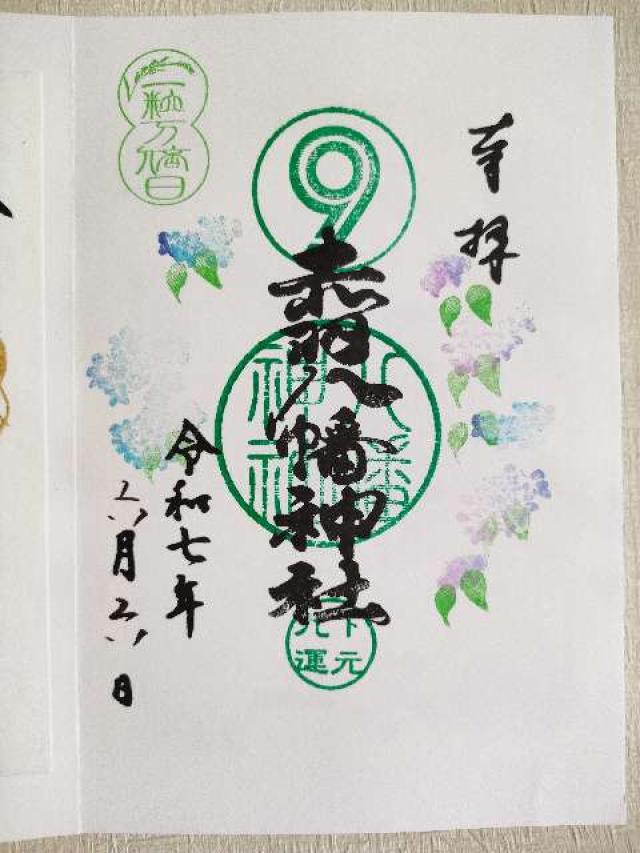 奉拝
赤羽八幡神社
八幡神社
開運
令和七年
六月六日
一粒万倍日